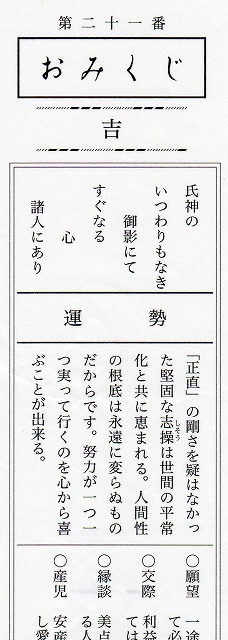 第二十一番
おみくじ
吉
氏神の
いつわりもなき
御影にて
すぐなる
心
諸人にあり
運勢
「正直」の剛さを疑はなかっ
た堅固な志操は世間の平常
しそう
化と共に恵まれる。人間性
の根底は永遠に変らぬもの
だからです。努力が一つ一
つ実って行くのを心から喜
ぶことが出来る。
〇願望 一途
て必
〇交際 利益
ては
〇縁談 美点
る人
〇産児 安産
し愛